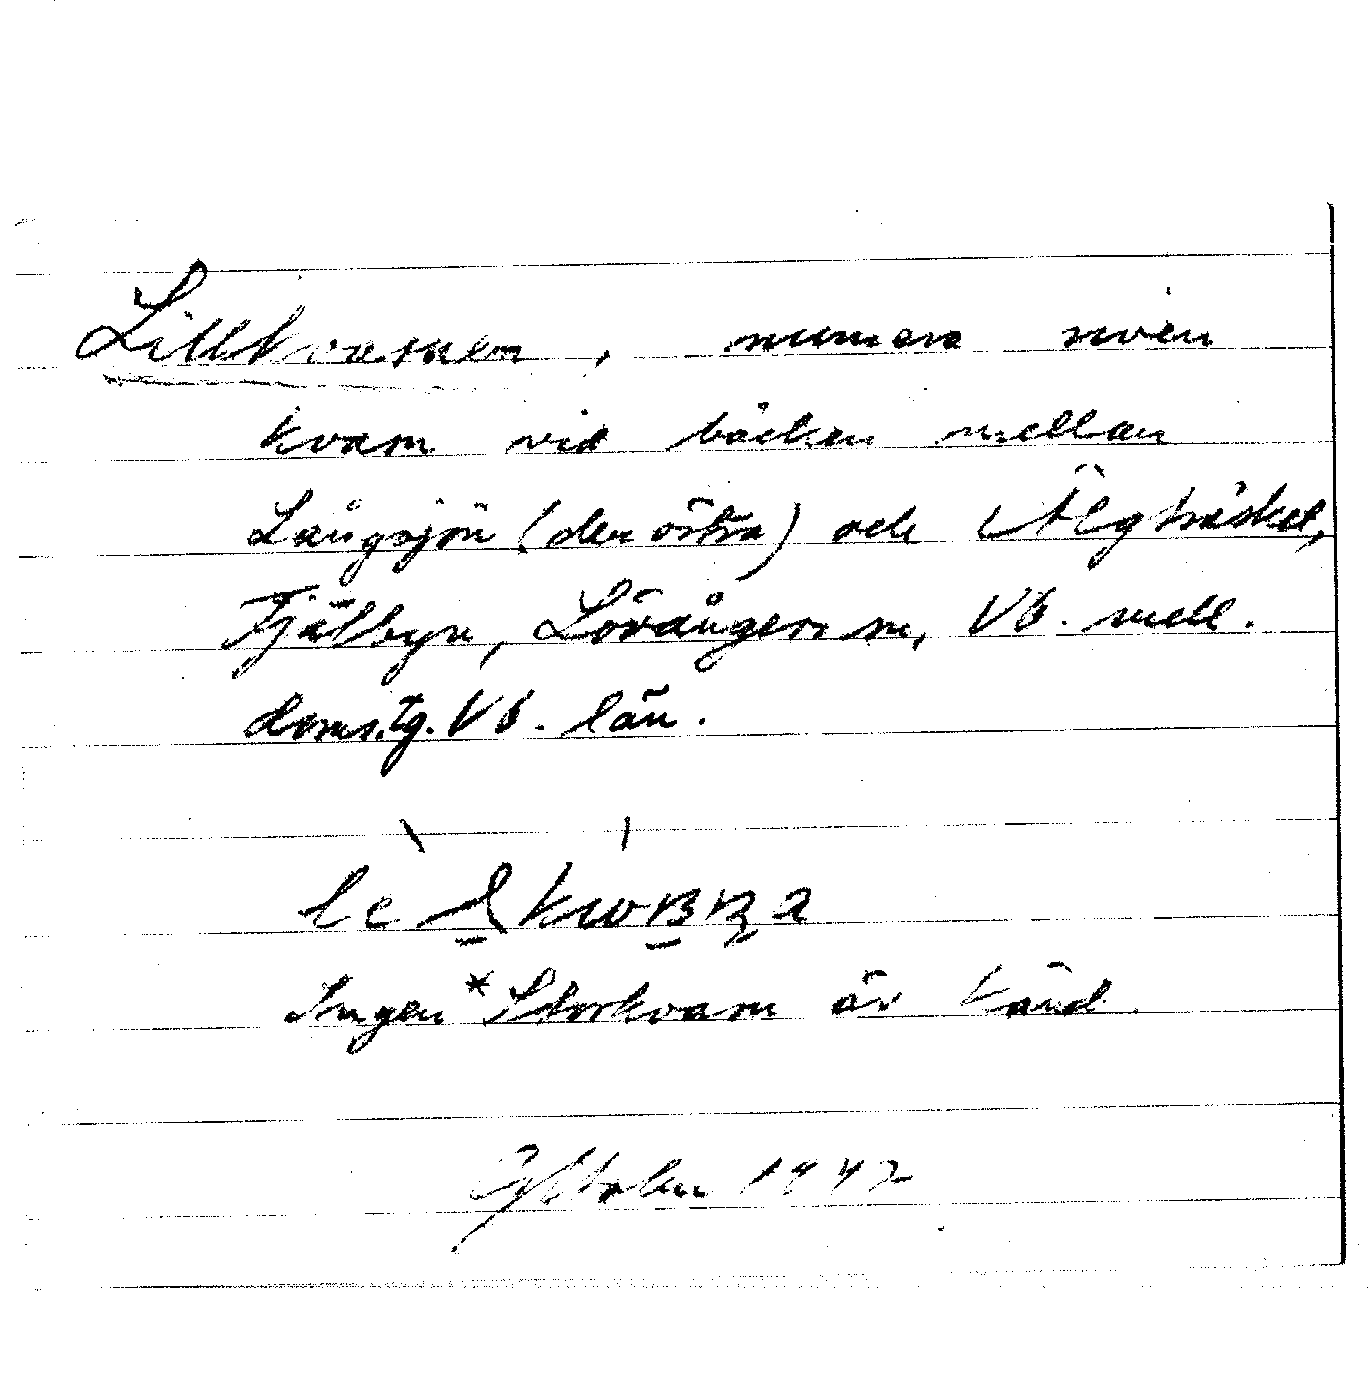 Lillkvarnen, numera riven
kvarn vid bäcken mellan
Långsjön (den östra) och Älgträsket,
Fjälbyn, Lövångers sn, Vb. mell.
doms.tg. Vb. län.
Ingen *Storkvarn är känd
1942